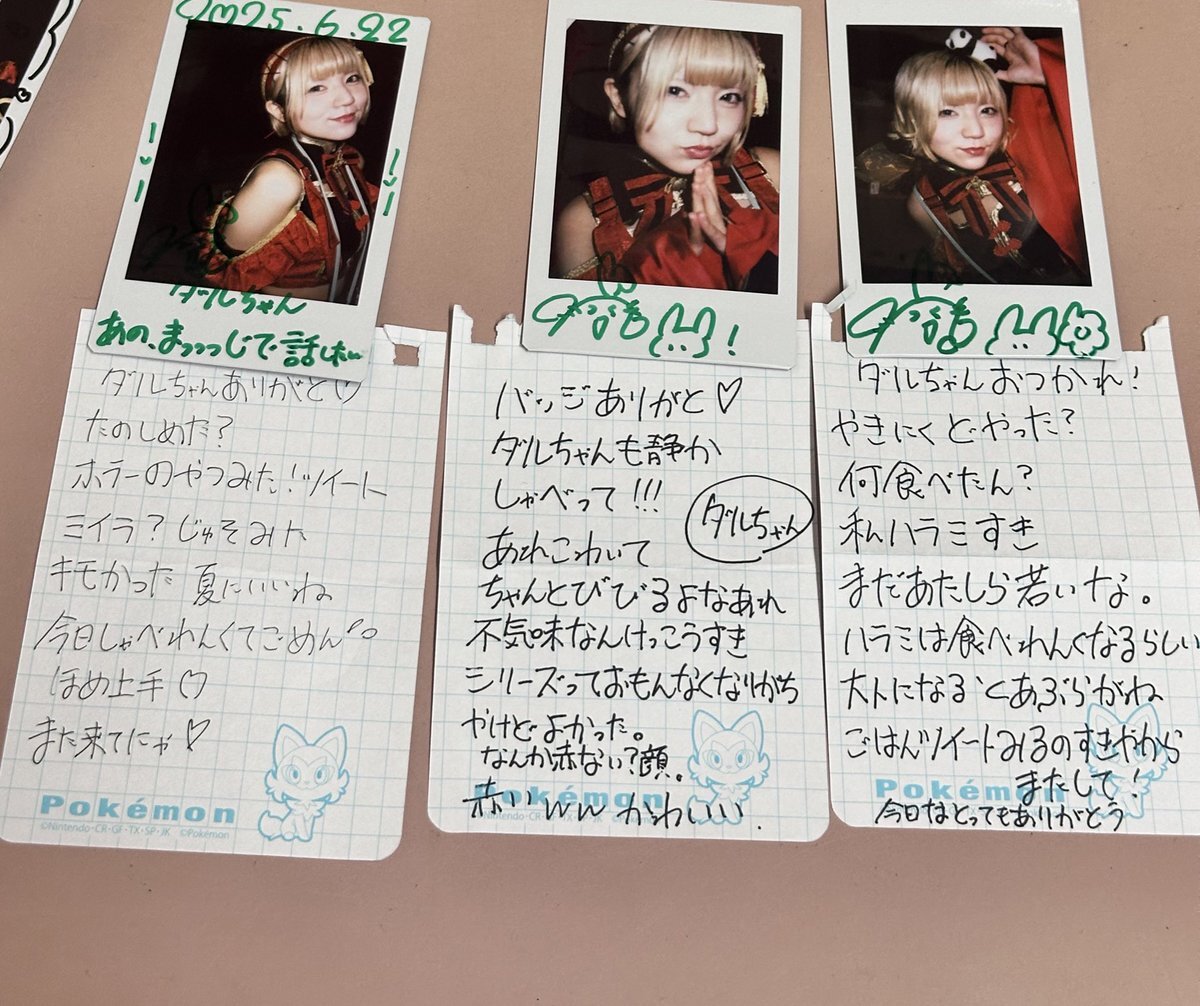 2025.6.22
ダルちゃん
あの、まっっっじで話した
ダルちゃんありがと♡
たのしめた?
ホラーのやつみた!ツイート
ミイラ?じゅそみた
キモかった 夏にいいね
今日しゃべれんくてごめん
ほめ上手♡
また来てにゃ♡
Pokémon
©Nintendo・CR・GF・TX・SP・JK ©Pokémon
!
バッジありがと♡
ダルちゃんも静か
しゃべって!!!
ダルちゃん
あれこわいて
ちゃんとびびるよなあれ
不気味なんけっこうすき
シリーズっておもんなくなりがち
やけどよかった。
なんか赤ない?顔。
赤いww かわいい
Pokémon
Nintendo・CR・GF・TX・SP・JK ©Pokémon
ダルちゃんおつかれ!
やきにくどやった?
何食べたん?
私ハラミすき
まだあたしら若いな。
ハラミは食べれんくなるらしい
大人になるとあぶらがね
ごはんツイートみるのすきやから
またして!
今日なとってもありがとう
Pokémon